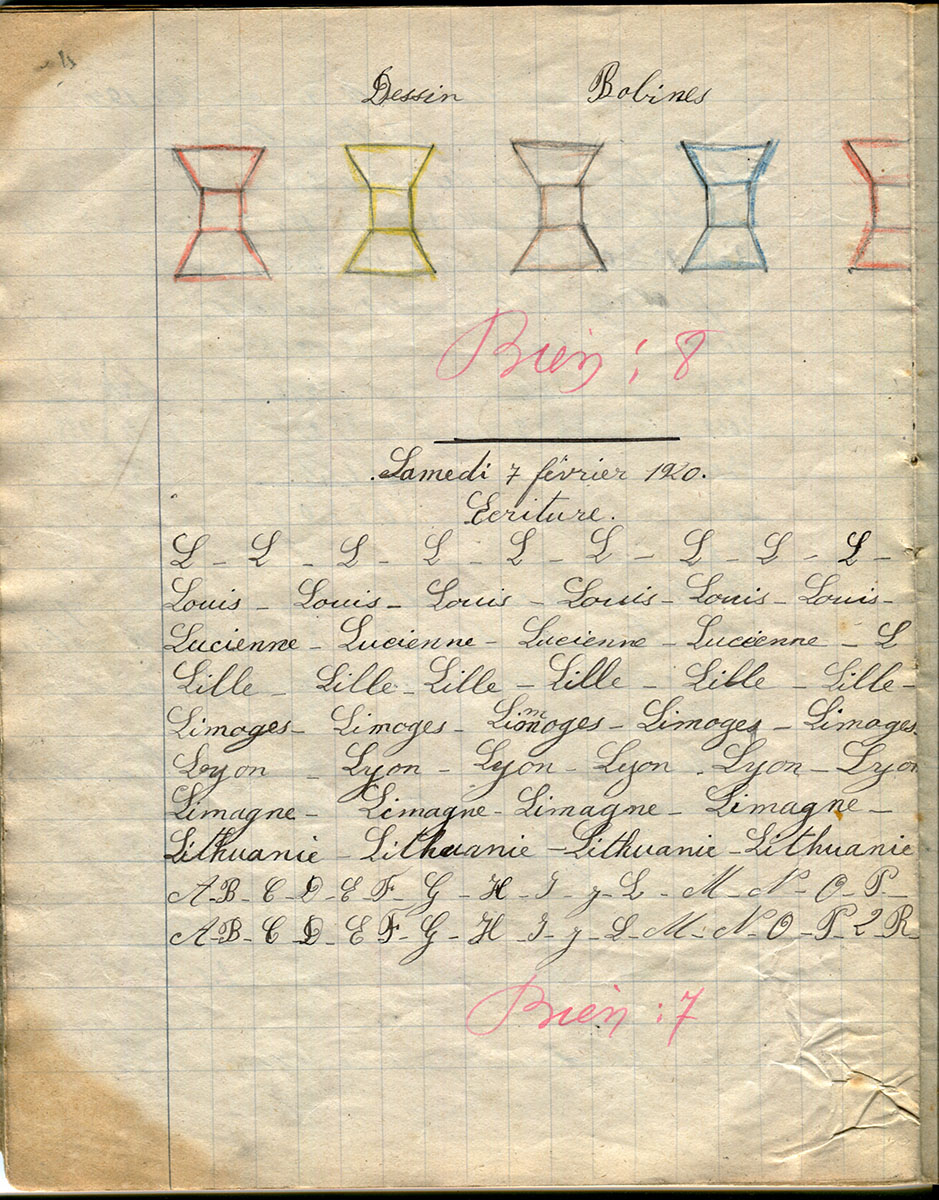 Dessin Bobines
Bien : 8
Samedi 7 février 1920.
Ecriture.
L - L - L - L - L - L - L - L - L -
Louis - Louis - Louis - Louis - Louis - Louis -
Lucienne - Lucienne - Lucienne - Lucienne - L
Lille - Lille - Lille - Lille - Lille - Lille -
Limoges - Limoges - Limoges - Limoges - Limoges
Lyon - Lyon - Lyon - Lyon - Lyon - Lyon
Limagne - Limagne - Limagne - Limagne -
Lithuanie - Lithuanie - Lithuanie - Lithuanie
A - B - C - D - E - F - G - H - I - J - L - M - N - O - P -
A - B - C - D - E - F - G - H - I - J - L - M - N - O - P - Q - R
Bien : 7